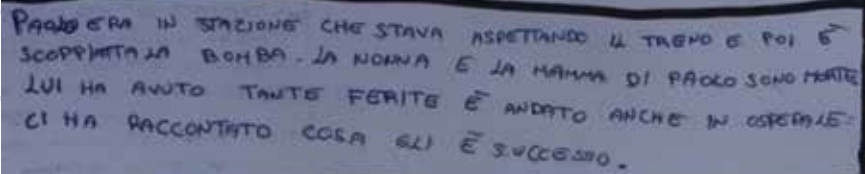 PAOLO ERA IN STAZIONE CHE STAVA ASPETTANDO IL TRENO E POI È
SCOPPIATA LA BOMBA. LA NONNA E LA MAMMA DI PAOLO SONO MORTE
LUI HA AVUTO TANTE FERITE È ANDATO ANCHE IN OSPEDALE.
CI HA RACCONTATO COSA GLI È SUCCESSO.